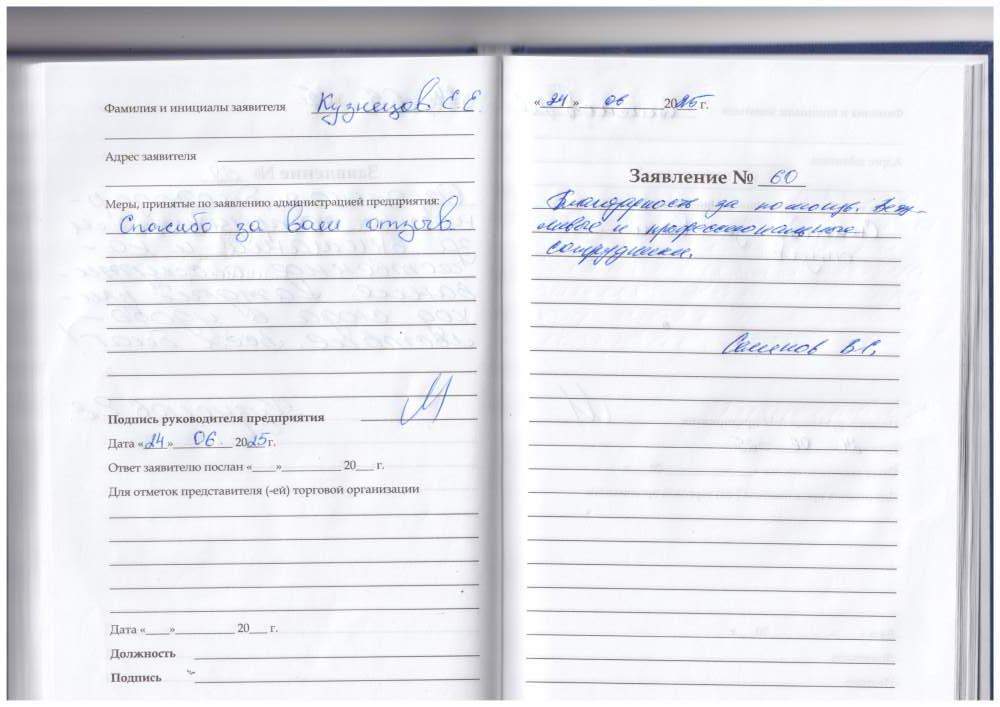 Фамилия и инициалы заявителя Кузнецов Е.Е.
Адрес заявителя
Меры, принятые по заявлению администрацией предприятия:
Спасибо за ваш отзыв
Подпись руководителя предприятия
Дата «24» 06 2025 г.
Ответ заявителю послан «____»__________ 20___ г.
Для отметок представителя (-ей) торговой организации
Дата «____»__________ 20___ г.
Должность
Подпись
«24» 06 2025 г.
Заявление № 60
Благодарность за помощь. Веж-
ливые и профессиональные
сотрудники.
Семенов В.С.